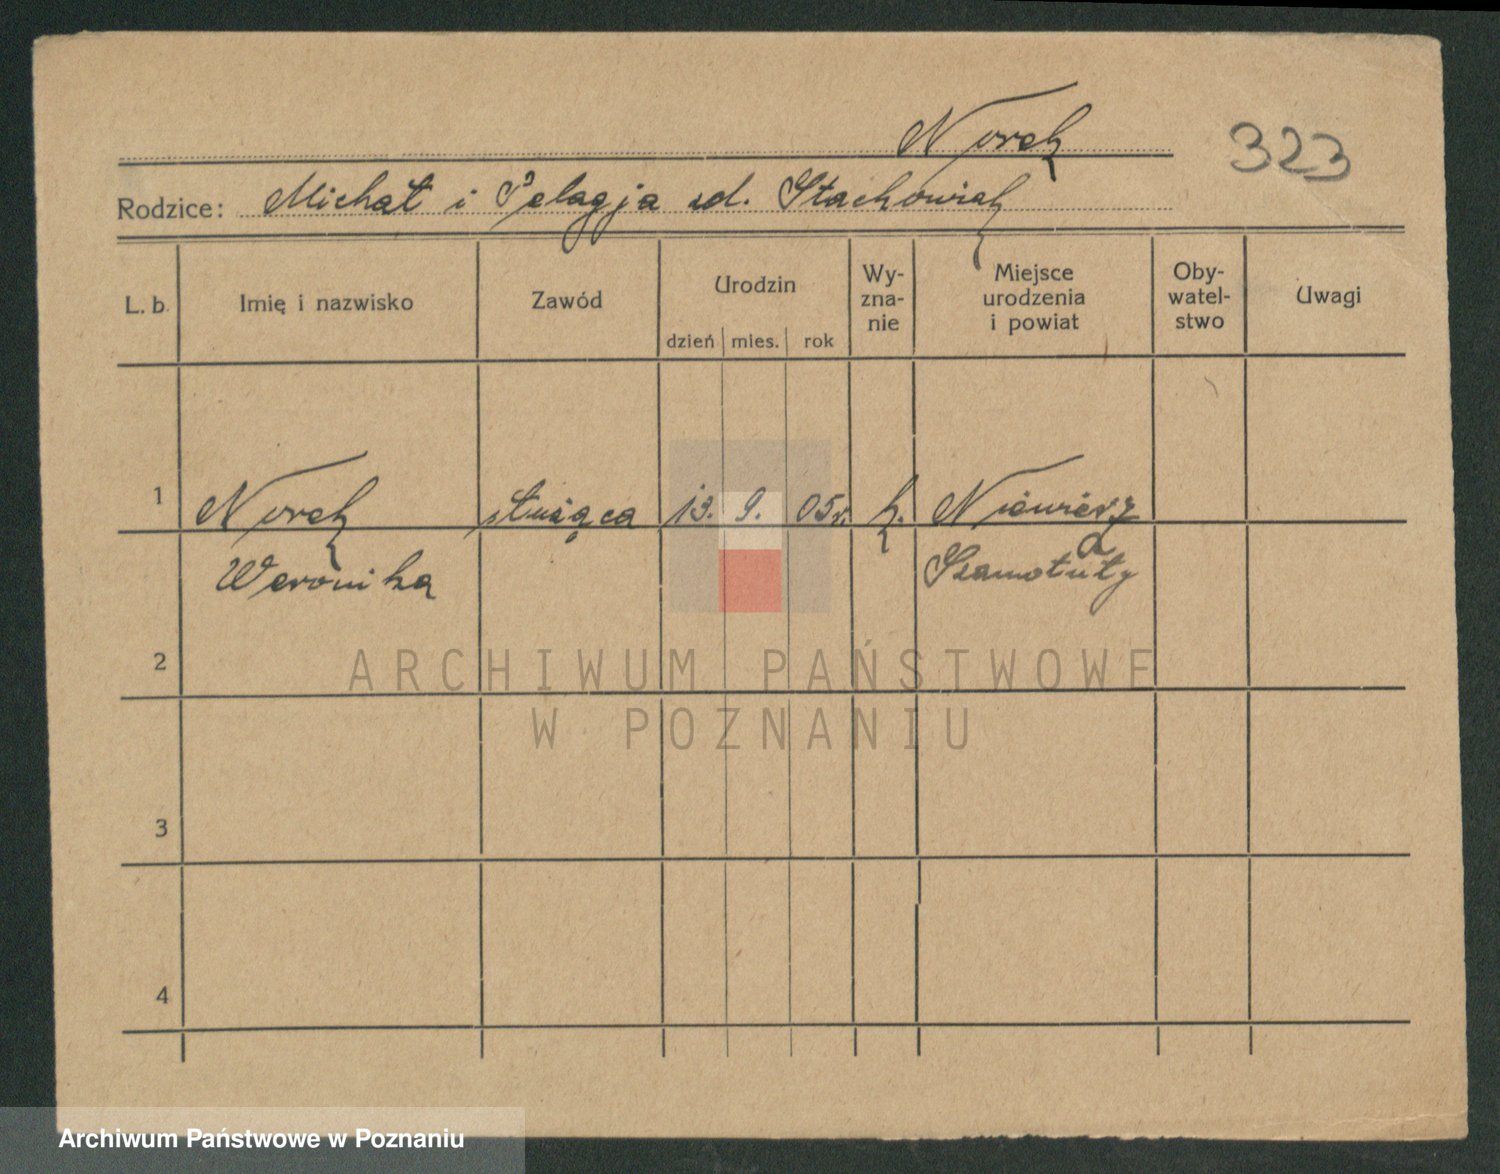 Norek
323
Rodzice: Michał i Pelagja zd. Stachowiak
L. b. Imię i nazwisko Zawód Urodzin dzień mies. rok Wy-zna-nie Miejsce urodzenia i powiat Oby-watel-stwo Uwagi
1 Norek służąca 13. 9. 05r. k. Niewierz
Weronika Szamotuły
2
ARCHIWUM PAŃSTWOWE
W POZNANIU
3
4
Archiwum Państwowe w Poznaniu